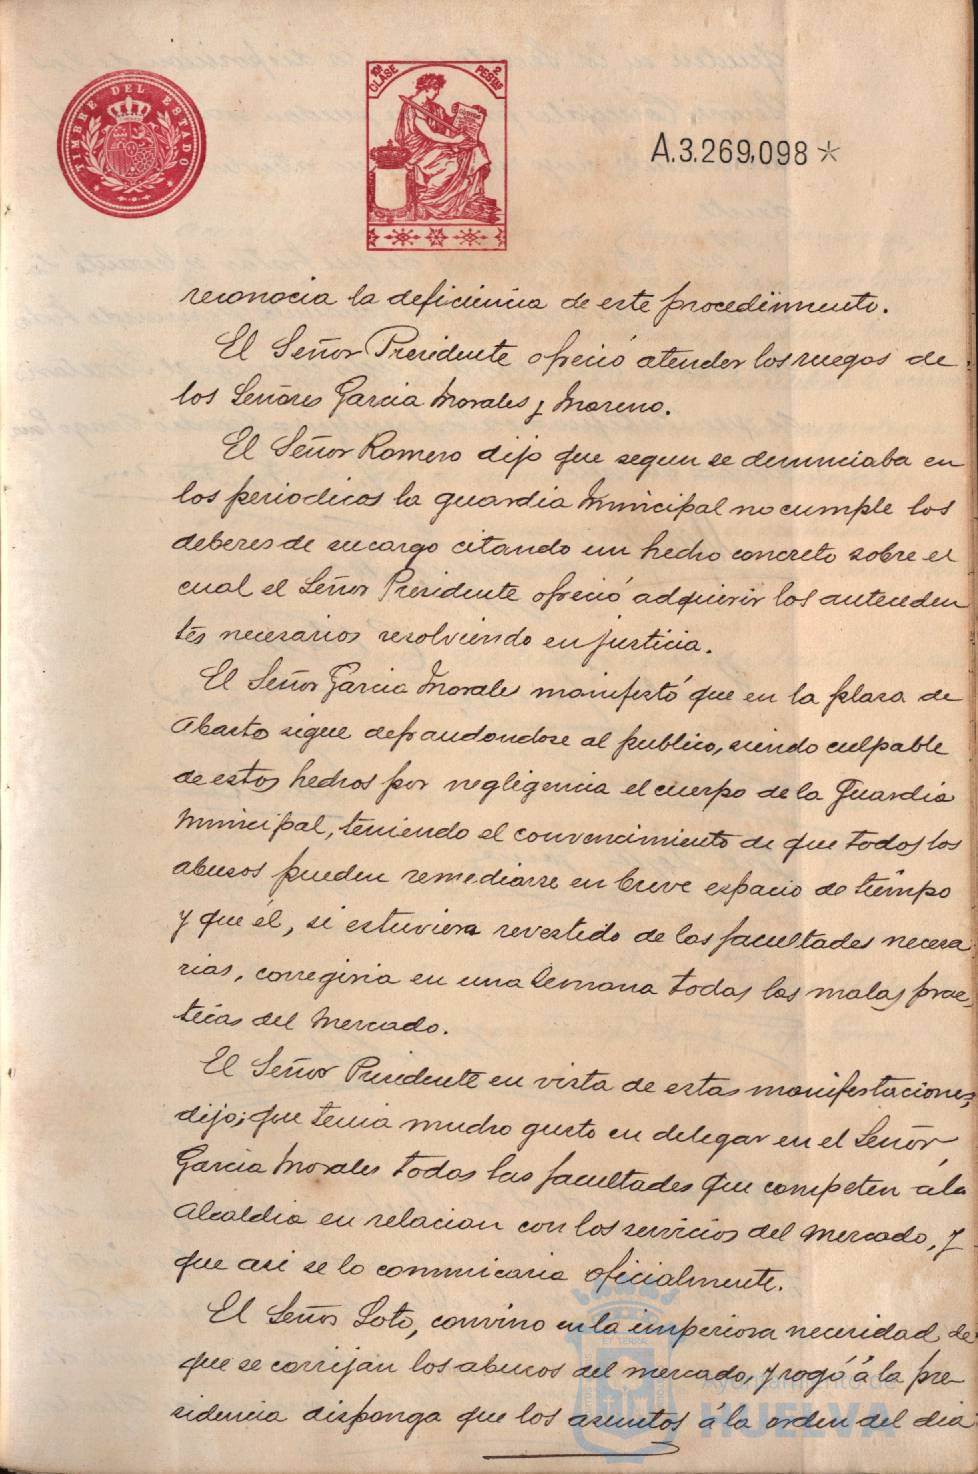 TIMBRE DEL ESTADO
10ª CLASE 2 PESETAS
A.3.269,098 *
reconocia la deficiencia de este procedimiento.
El Señor Presidente ofreció atender los ruegos de
los Señores Garcia Morales y Moreno.
El Señor Romero dijo que segun se denunciaba en
los periodicos la guardia Municipal no cumple los
deberes de su cargo citando un hecho concreto sobre el
cual el Señor Presidente ofreció adquirir los anteceden
tes necesarios resolviendo en justicia.
El Señor Garcia Morales manifestó que en la plaza de
Abasto sigue defraudandose al publico, siendo culpable
de estos hechos por negligencia el cuerpo de la Guardia
Municipal, teniendo el convencimiento de que todos los
abusos pueden remediarse en breve espacio de tiempo
y que él, si estuviera revestido de las facultades necesa
rias, corregiria en una semana todas las malas prac-
ticas del Mercado.
El Señor Presidente en vista de estas manifestaciones,
dijo; que tenia mucho gusto en delegar en el Señor
Garcia Morales todas las facultades que competen á la
Alcaldia en relacion con los servicios del Mercado, y
que asi se lo comunicaria oficialmente.
El Señor Soto, convino en la imperiosa necesidad de
que se corrijan los abusos del mercado, y rogó á la pre-
sidencia disponga que los asuntos á la orden del dia
Ayuntamiento de
HUELVA